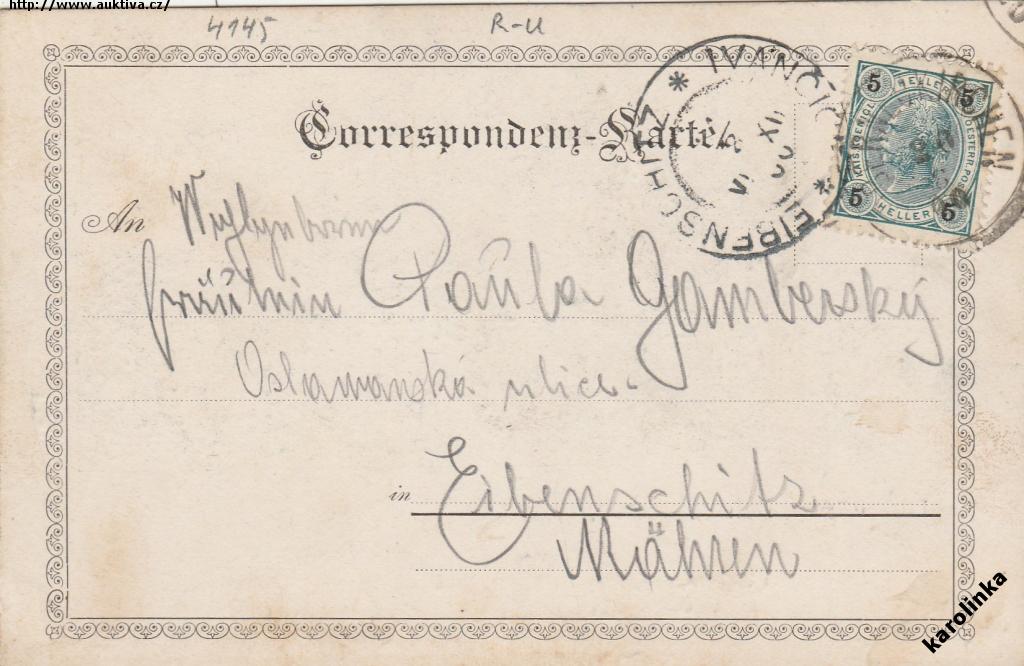 http://www.auktiva.cz/
4145
R-U
Correspondenz-Karte.
EIBENSCHITZ * IVANČIC *
XII
WIEN
5 HELLER 5
KAIS.KOENIGL. OESTERR.POST
5 HELLER 5
An
Fräulein Paula Gamberský
Oslawanská ulice.
in Eibenschitz
Mähren
karolinka